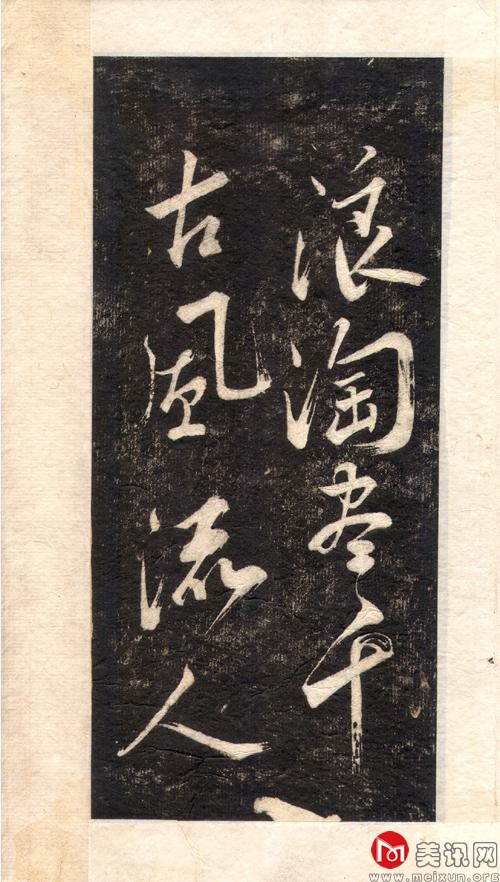 浪淘尽千
古風流人
美讯网
www.meixun.org